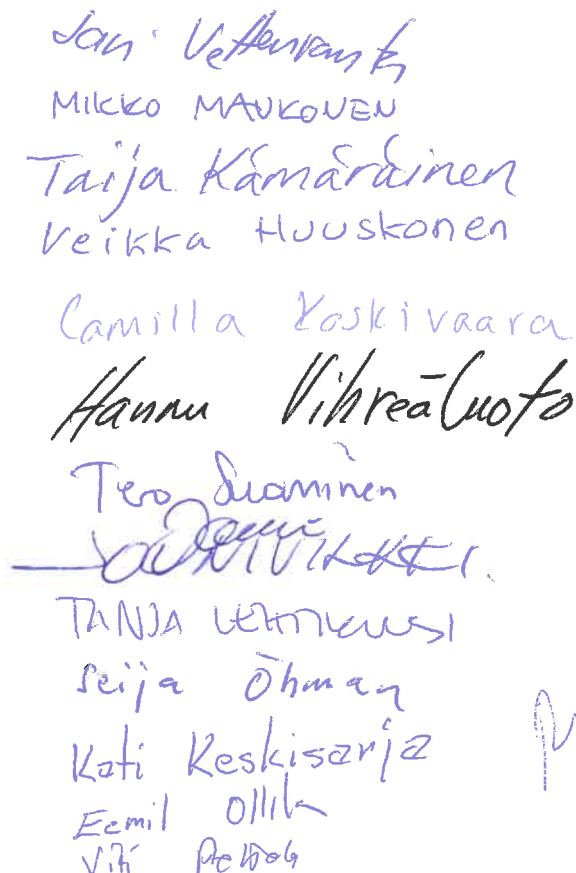 Jani Vettenranta
MIKKO MAUKONEN
Taija Kämäräinen
Veikka Huuskonen
Camilla Koskivaara
Hannu Vihreäluoto
Tero Suominen
TANJA LEHTIKUUSI
Seija Öhman
Kati Keskisarja
Eemil Ollila